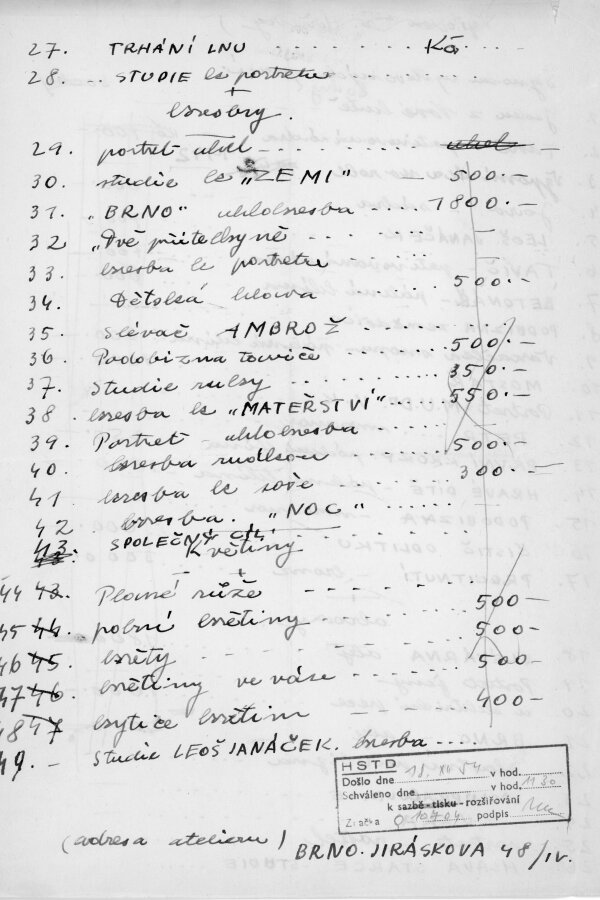 27. TRHÁNÍ LNU ........ Kč....
28. .. STUDIE k portretu
+
kresby.
29. portret uhel - ........ uhel -
30. studie k „ZEMI" 500.-
31. „BRNO" uhlokresba .... 1800.-
32 „Dvě přítelkyně ........ -
33. kresba k portretu
34. Dětská hlava ........ 500.-
35. Slévač AMBROŽ ........
36. Podobizna tanečnice ........ 500.-
37. Studie ruky ........ 350.-
38 kresba k „MATEŘSTVÍ" ...... 550.-
39. Portret - uhlokresba ........
40. kresba rudkou ........ 500.-
41 kresba k soše ........ 300.-
42 kresba. „NOC" ......
43 SPOLEČNÝ CÍL
Květiny
+
44 43. Plané růže - - - - - 500-
45 44. polní květiny ........ 500-
46 45. květy - - - ........ 500-
47 46 květiny ve váze ........
48 47 kytice květin - - 400-
49. - studie LEOŠ JANÁČEK. kresba ....
HSTD
Došlo dne 13. XII 54 v hod.
Schváleno dne v hod. 11 30
k sazbě - tisku - rozšiřování
Značka podpis
(adresa atelieru) BRNO. JIRÁSKOVA 48/IV.